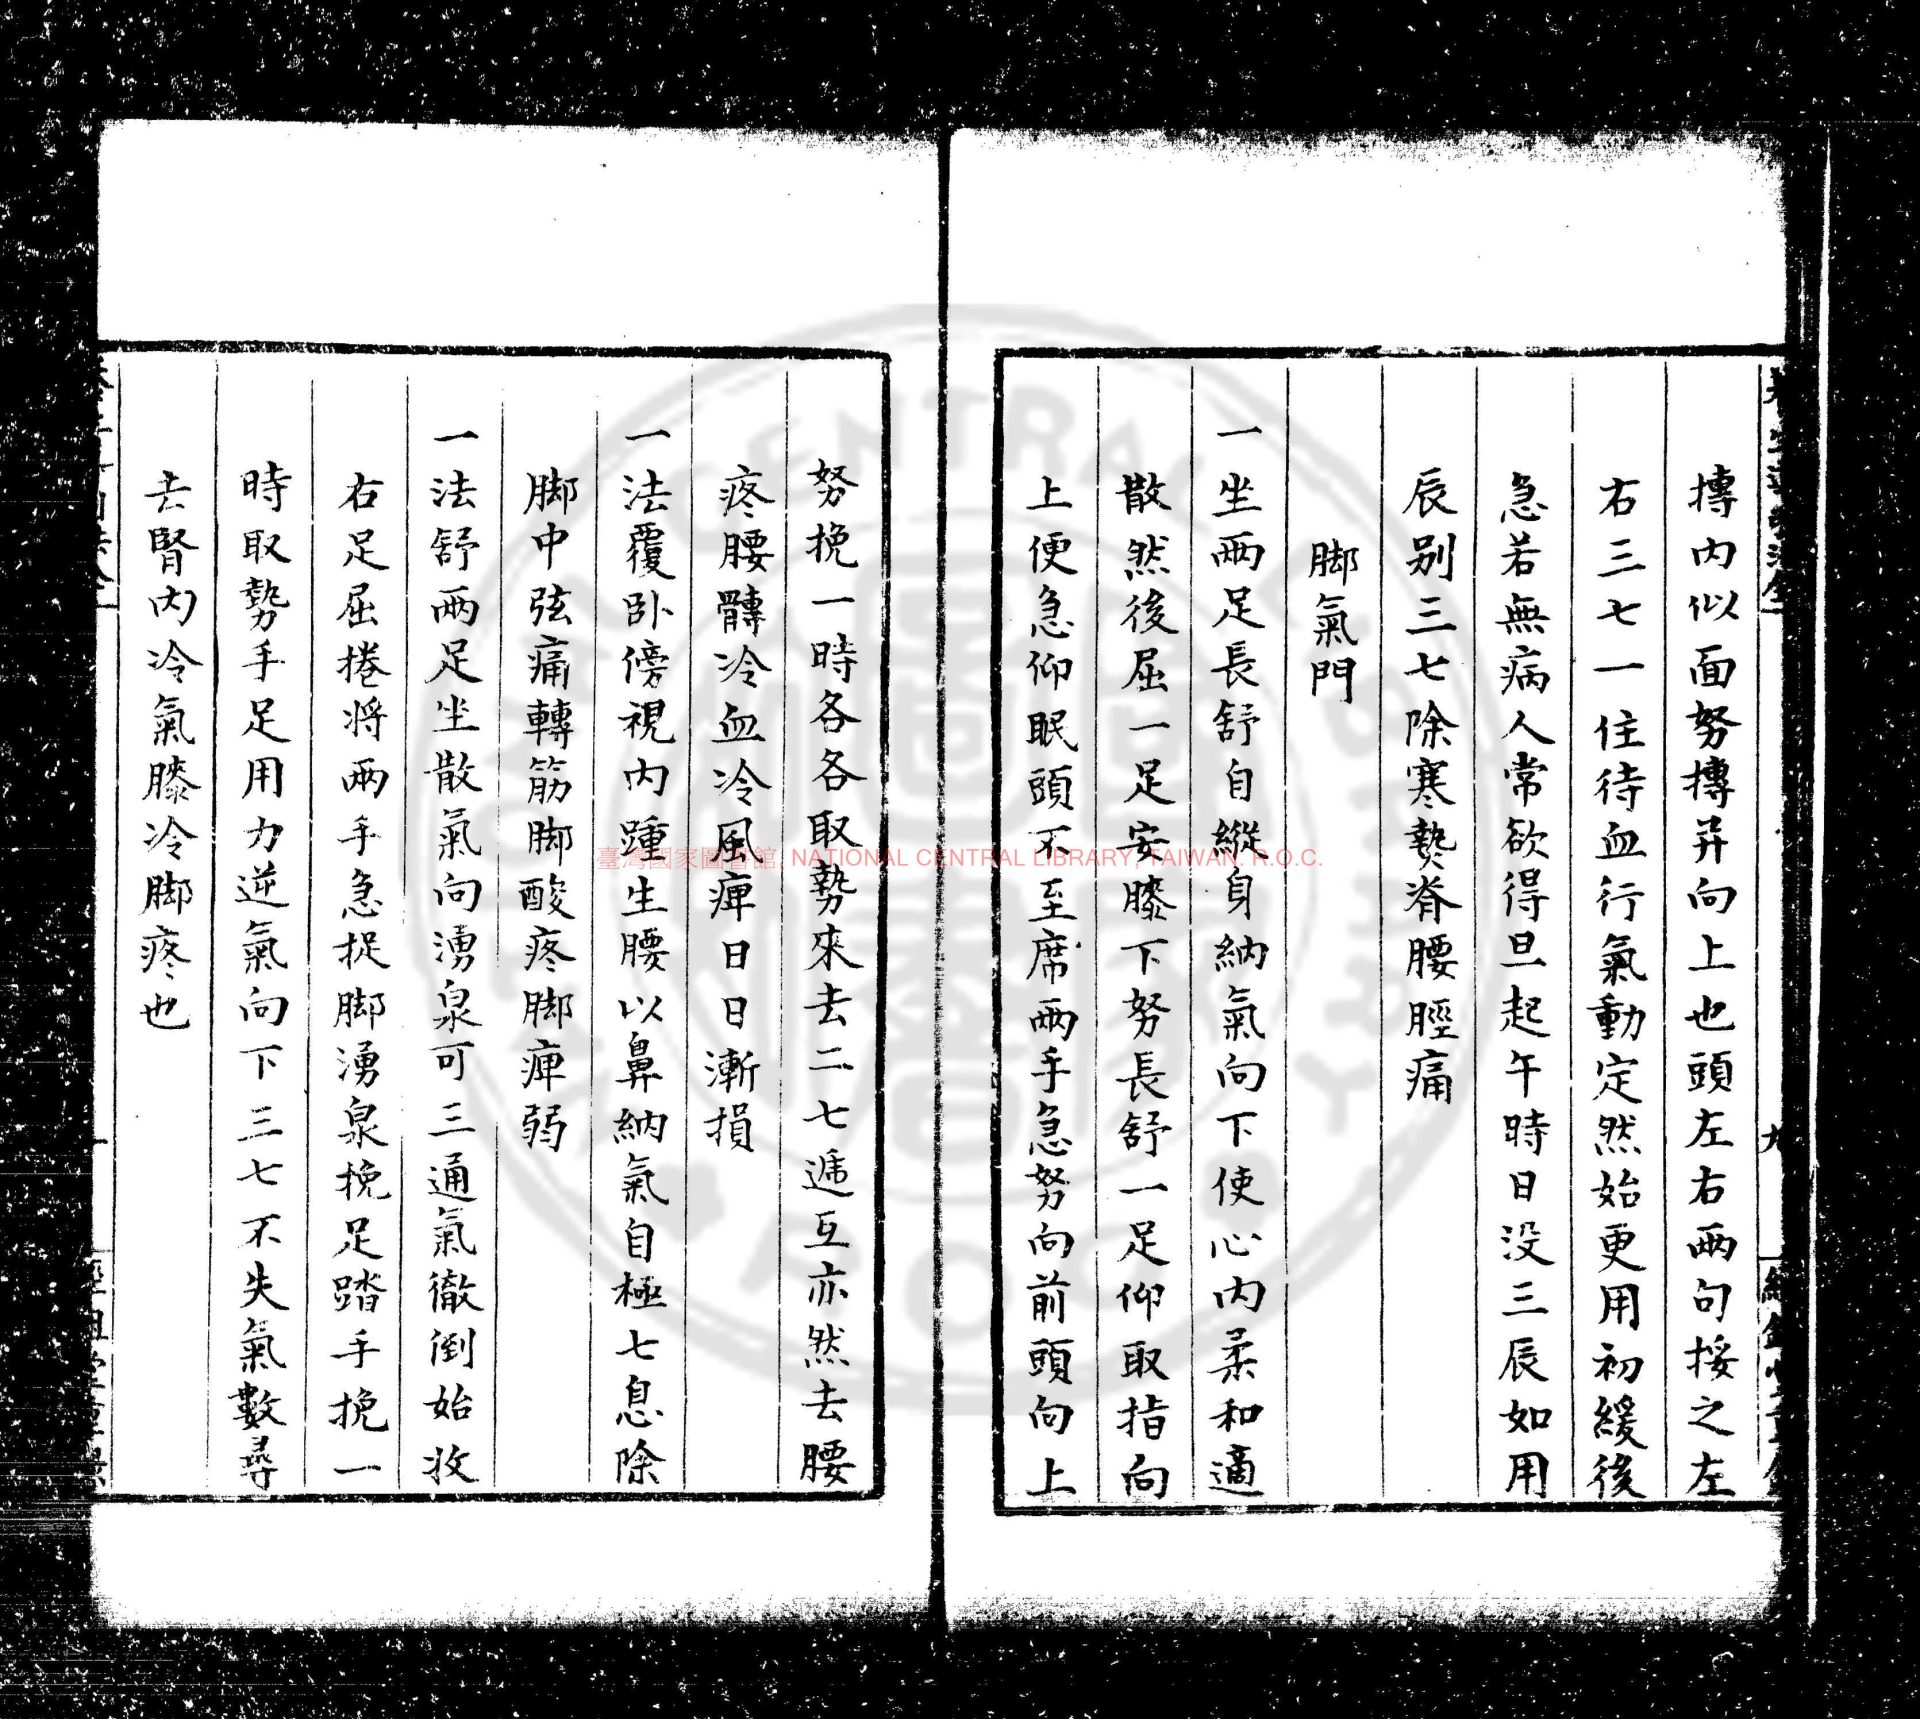 搏內似面努搏弄向上也頭左右兩句挼之左
右三七一住待血行氣動定然始更用初緩後
急若無病人常欲得旦起午時日没三辰如用
辰别三七除寒𤍽脊腰脛痛
脚氣門
一坐兩足長舒自縱身納氣向下使心內柔和適
散然後屈一足安膝下努長舒一足仰取指向
上便急仰眠頭不至席兩手急努向前頭向上
努挽一時各各取勢來去二七遞互亦然去腰
疼腰髆冷血冷風痺日日漸損
一法覆卧傍視內踵生腰以鼻納氣自極七息除
脚中弦痛轉筋脚酸疼脚痺弱
一法舒兩足坐散氣向湧泉可三通氣徹倒始收
右足屈捲將兩手急捉脚湧泉挽足踏手挽一
時取勢手足用力逆氣向下三七不失氣數尋
去腎內冷氣膝冷脚疼也
臺灣國家圖書館, NATIONAL CENTRAL LIBRARY, TAIWAN. R.O.C.